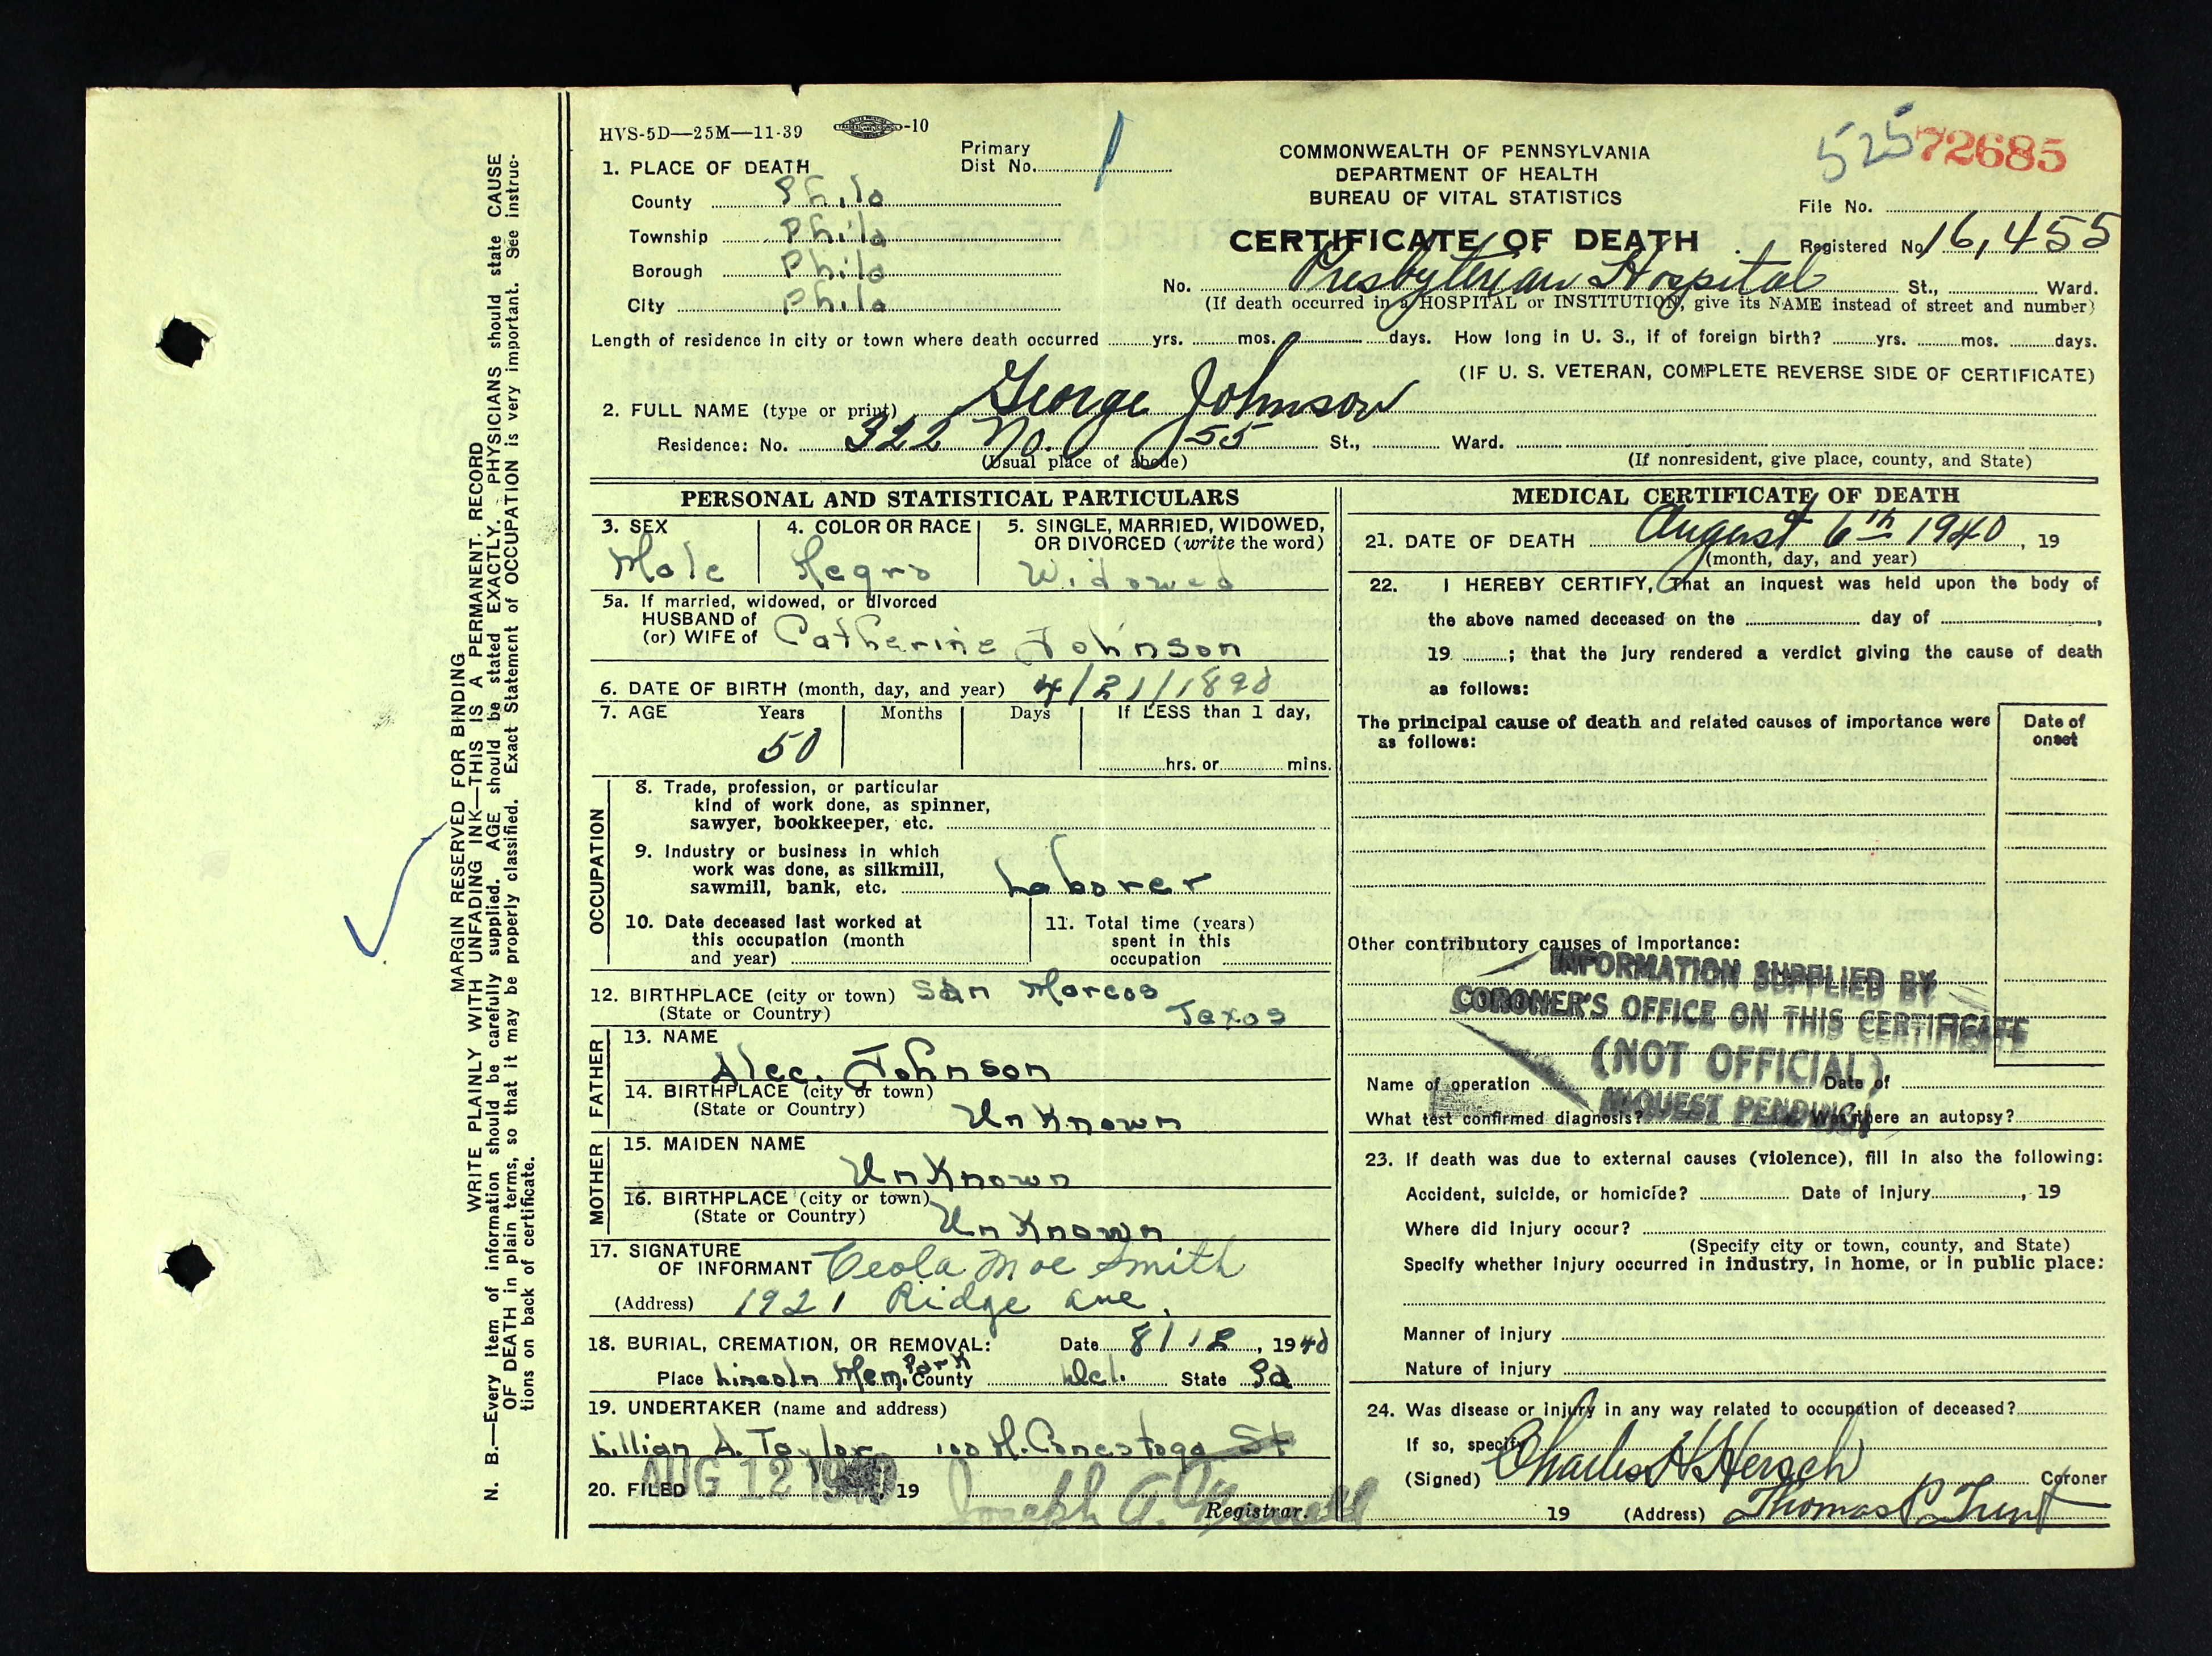 HVS-5D—25M—11-39 -10
Primary
Dist No. 1
COMMONWEALTH OF PENNSYLVANIA
DEPARTMENT OF HEALTH
BUREAU OF VITAL STATISTICS
CERTIFICATE OF DEATH
525 72685
File No.
Registered No. 16,455
1. PLACE OF DEATH
County Phila
Township Phila
Borough Phila
City Phila
No. Presbyterian Hospital St., Ward.
(If death occurred in a HOSPITAL or INSTITUTION, give its NAME instead of street and number)
Length of residence in city or town where death occurred yrs. mos. days. How long in U. S., if of foreign birth? yrs. mos. days.
(IF U. S. VETERAN, COMPLETE REVERSE SIDE OF CERTIFICATE)
2. FULL NAME (type or print) George Johnson
Residence: No. 322 No. 55 St., Ward.
(Usual place of abode) (If nonresident, give place, county, and State)
PERSONAL AND STATISTICAL PARTICULARS
3. SEX
Male
4. COLOR OR RACE
Negro
5. SINGLE, MARRIED, WIDOWED,
OR DIVORCED (write the word)
Widowed
5a. If married, widowed, or divorced
HUSBAND of
(or) WIFE of Catherine Johnson
6. DATE OF BIRTH (month, day, and year) 4/21/1890
7. AGE Years Months Days If LESS than 1 day,
50 hrs. or mins.
OCCUPATION
8. Trade, profession, or particular
kind of work done, as spinner,
sawyer, bookkeeper, etc.
9. Industry or business in which
work was done, as silkmill,
sawmill, bank, etc. Laborer
10. Date deceased last worked at
this occupation (month
and year)
11. Total time (years)
spent in this
occupation
12. BIRTHPLACE (city or town) San Marcos
(State or Country) Texas
FATHER
13. NAME
Alec. Johnson
14. BIRTHPLACE (city or town)
(State or Country) UnKnown
MOTHER
15. MAIDEN NAME
UnKnown
16. BIRTHPLACE (city or town)
(State or Country) UnKnown
17. SIGNATURE
OF INFORMANT Ceola Mae Smith
(Address) 1921 Ridge ave.
18. BURIAL, CREMATION, OR REMOVAL: Date 8/12, 1940
Place Lincoln Mem. Park County Del. State Pa
19. UNDERTAKER (name and address)
Lillian A. Taylor 100 N. Conestoga St
20. FILED AUG 12 1940, 19
Joseph A.
Registrar.
MEDICAL CERTIFICATE OF DEATH
21. DATE OF DEATH August 6th 1940, 19
(month, day, and year)
22. I HEREBY CERTIFY, That an inquest was held upon the body of
the above named deceased on the day of ,
19 ; that the jury rendered a verdict giving the cause of death
as follows:
The principal cause of death and related causes of importance were
as follows:
Date of
onset
Other contributory causes of importance:
INFORMATION SUPPLIED BY
CORONER'S OFFICE ON THIS CERTIFICATE
(NOT OFFICIAL)
INQUEST PENDING
Name of operation Date of
What test confirmed diagnosis? Was there an autopsy?
23. If death was due to external causes (violence), fill in also the following:
Accident, suicide, or homicide? Date of injury , 19
Where did injury occur?
(Specify city or town, county, and State)
Specify whether injury occurred in industry, in home, or in public place:
Manner of injury
Nature of injury
24. Was disease or injury in any way related to occupation of deceased?
If so, specify
(Signed) Charles H. Hersch Coroner
19 (Address) Thomas P.
MARGIN RESERVED FOR BINDING
WRITE PLAINLY WITH UNFADING INK—THIS IS A PERMANENT RECORD
N. B.—Every item of information should be carefully supplied. AGE should be stated EXACTLY. PHYSICIANS should state CAUSE
OF DEATH in plain terms, so that it may be properly classified. Exact Statement of OCCUPATION is very important. See instruc-
tions on back of certificate.